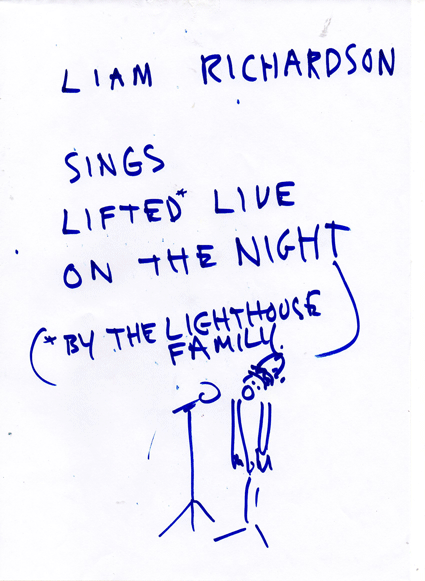 LIAM RICHARDSON
SINGS
LIFTED* LIVE
ON THE NIGHT
(* BY THE LIGHTHOUSE
FAMILY.)